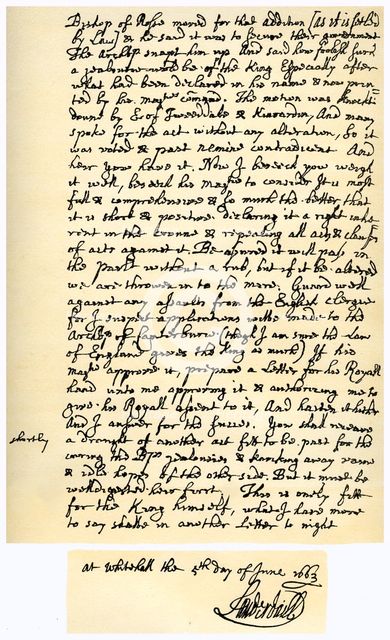 Bishop of Rosse moved for that addition [as it is setled
by Law] & he said it was to secure their government
The Archbp snapt him up And said how foolish such
a jealousie wold be of the King Especially after
what had been declared in his name & now prin=
ted by his maties comand. The motion was knockt
doune by E. of Tweeddale & Kincardin, And many
spoke for the act without any alteration, So it
was voted & past nemine contradicent And
heir you have it. Now I beseech you weigh
it well, beseech his matie to consider It is most
full & comprehensive & so much the better that
it is short & positive declaring it a right inhe
rent in the croune & repealing all acts & clauses
of acts against it. Be assured it will pass in
the parlt without a rub, but if it be altered
we are throwen in to the mire. Guard well
against any assaults from the English Clergie
for I suspect applications wilbe made to the
Archbp of Canterburie (thogh I am sure the Law
of England gives the King as much) If his
matie approve it, prepare a Letter for his Royall
hand unto me approving it & authorizing me to
give his Royall assent to it, And hasten it hither
And I answer for the success. You shal receave
shortly a draught of another act fitt to be past for the
curing the Bps jealousies & knocking away vaine
& idle hopes of the other side. But it must be
well digested heir first. This is onely fitt
for the King himself, what I have more
to say shalbe in another Letter to night
at Whitehall the 5th day of June 1663
Lauderdaill